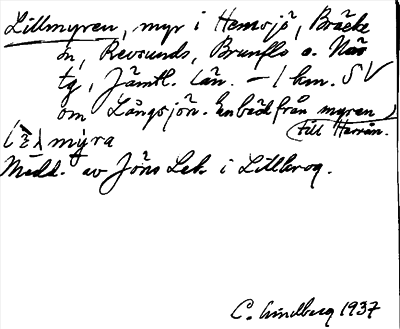 Lillmyren, myr i Hemsjö, Bräcke
sn, Revsunds, Brunflo o. Näs
tg, Jämtl. län. – 1 km. SV
om Långsjön. En bäd från myren
till Harrån.
mýra
Medd. av Jöns Lek i Lillkrog.
C. Lindberg 1937